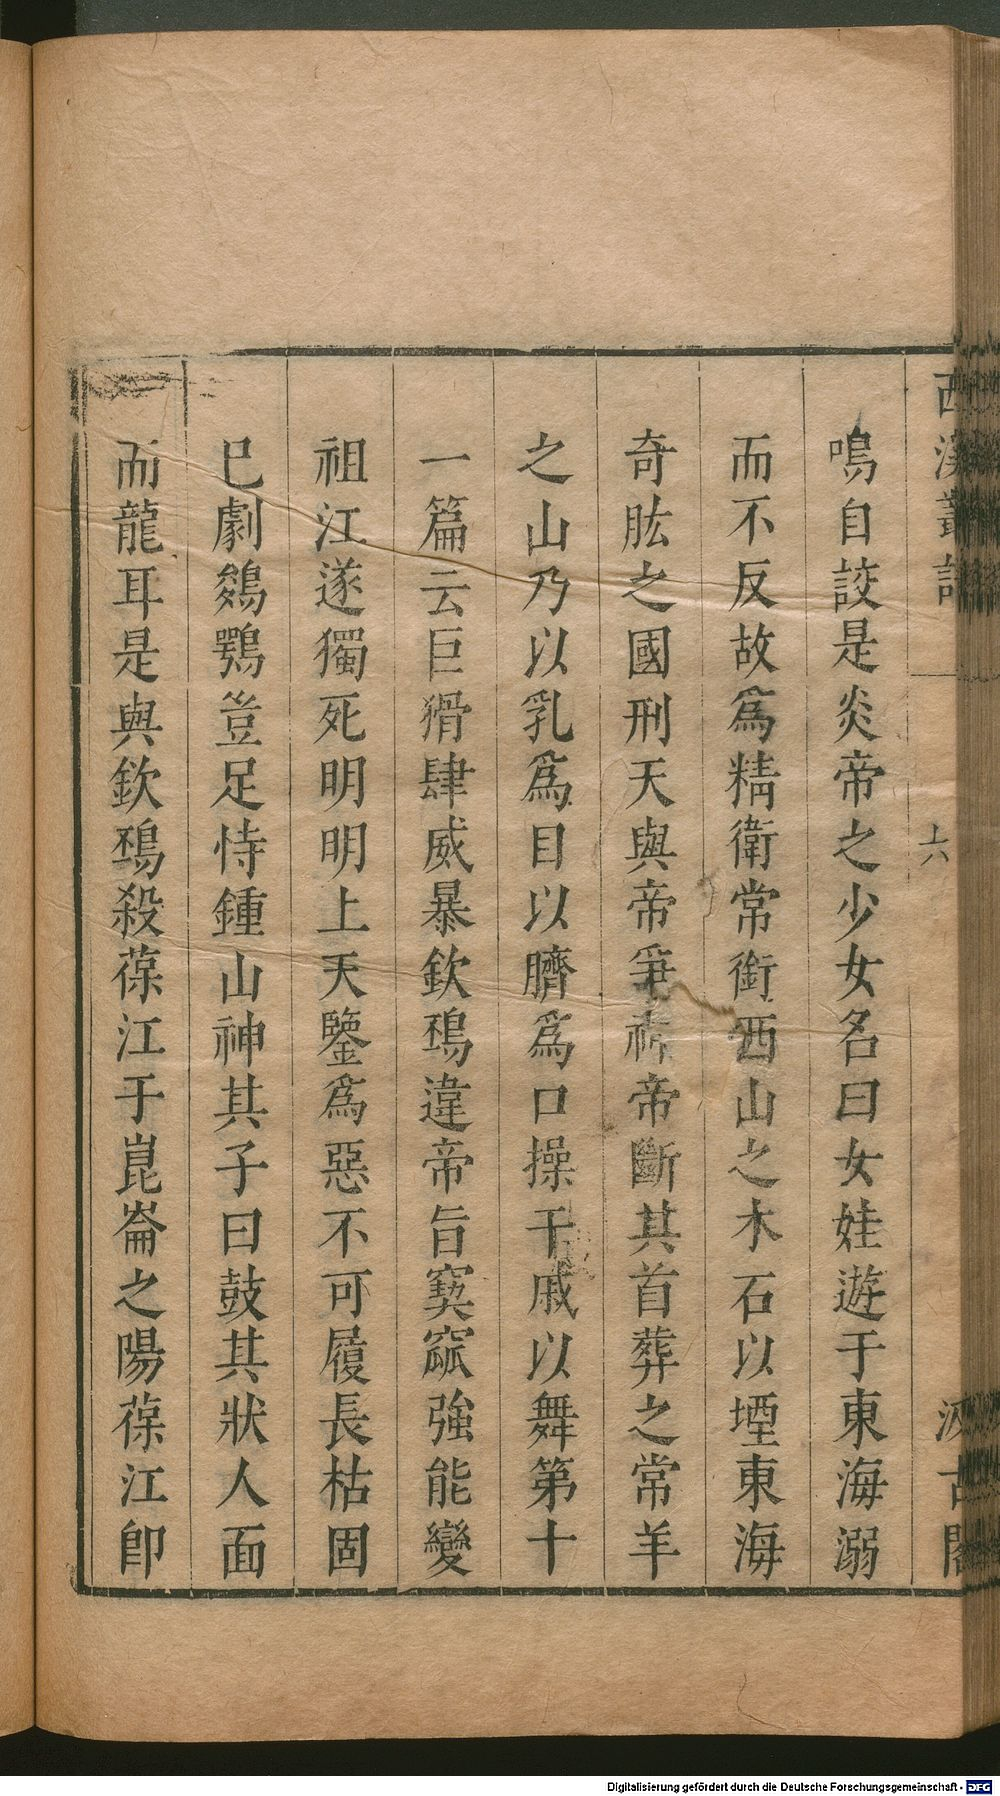 西溪叢語
六
汲古閣
鳴自詨是炎帝之少女名曰女娃遊于東海溺
而不反故爲精衛常銜西山之木石以堙東海
奇肱之國刑天與帝爭神帝斷其首葬之常羊
之山乃以乳爲目以臍爲口操干戚以舞第十
一篇云巨猾肆威暴欽䲹違帝旨窫窳強能變
祖江遂獨死明明上天鑒爲惡不可履長枯固
已劇鵕鶚豈足恃鍾山神其子曰鼓其狀人面
而龍耳是與欽䲹殺葆江于崑崙之陽葆江卽
Digitalisierung gefördert durch die Deutsche Forschungsgemeinschaft - DFG